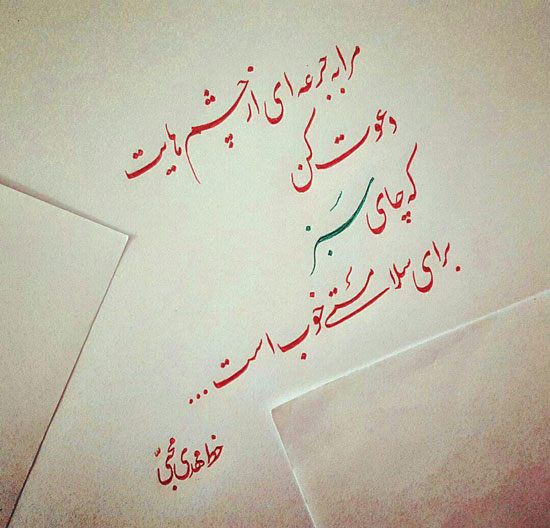 مرا به جرعه ای از چشم هایت
دعوت کن
که چای
سَبز
برای سلامتی خوب است...
خط مهدی محبی